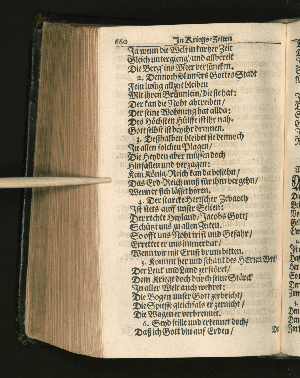 660 In Kriegs-Zeiten
Ja wenn die Welt in kurtzer Zeit
Gleich untergieng/ und allbereit
Die Berg ins Meer versüncken.
2. Dennoch soll unsers Gottes Stadt
Fein lustig allzeit bleiben
Mit ihren Brünnlein/ die sie hat:
Der kan die Noht abtreiben/
Der seine Wohnung hat allda:
Des Höchsten Hülffe ist ihr nah.
Gott selbst ist bey ihr drinnen.
3. Deßhalben bleibet sie dennoch
In allen solchen Plagen/
Die Heyden aber müssen doch
Hinfallen und verzagen:
Kein König/Reich kan da bestehn/
Das Erd-Reich muß für ihm vergehn/
Wenn er sich lässt hören.
4. Der starcke Herrscher Zebaoth
Ist stets auff unser Seiten:
Der rechte Heyland/ Jacobs Gott/
Schützt uns zu allen Zeiten.
So offt uns Noht trifft und Gefahr/
Errettet er uns immerdar/
Wenn wir mit Ernst drum bitten.
5. Kommt her und schaut des Herren Werck
Der Leut' und Land zerstöret/
Dem Kriege doch durch seine Stärck'
In aller Welt auch wehret:
Die Bogen unser Gott zerbricht/
Die Spiesse gleichfals er zernicht/
Die Wagen er verbrennet.
6. Seyd stille und erkennet doch/
Daß ich Gott bin auf Erden/